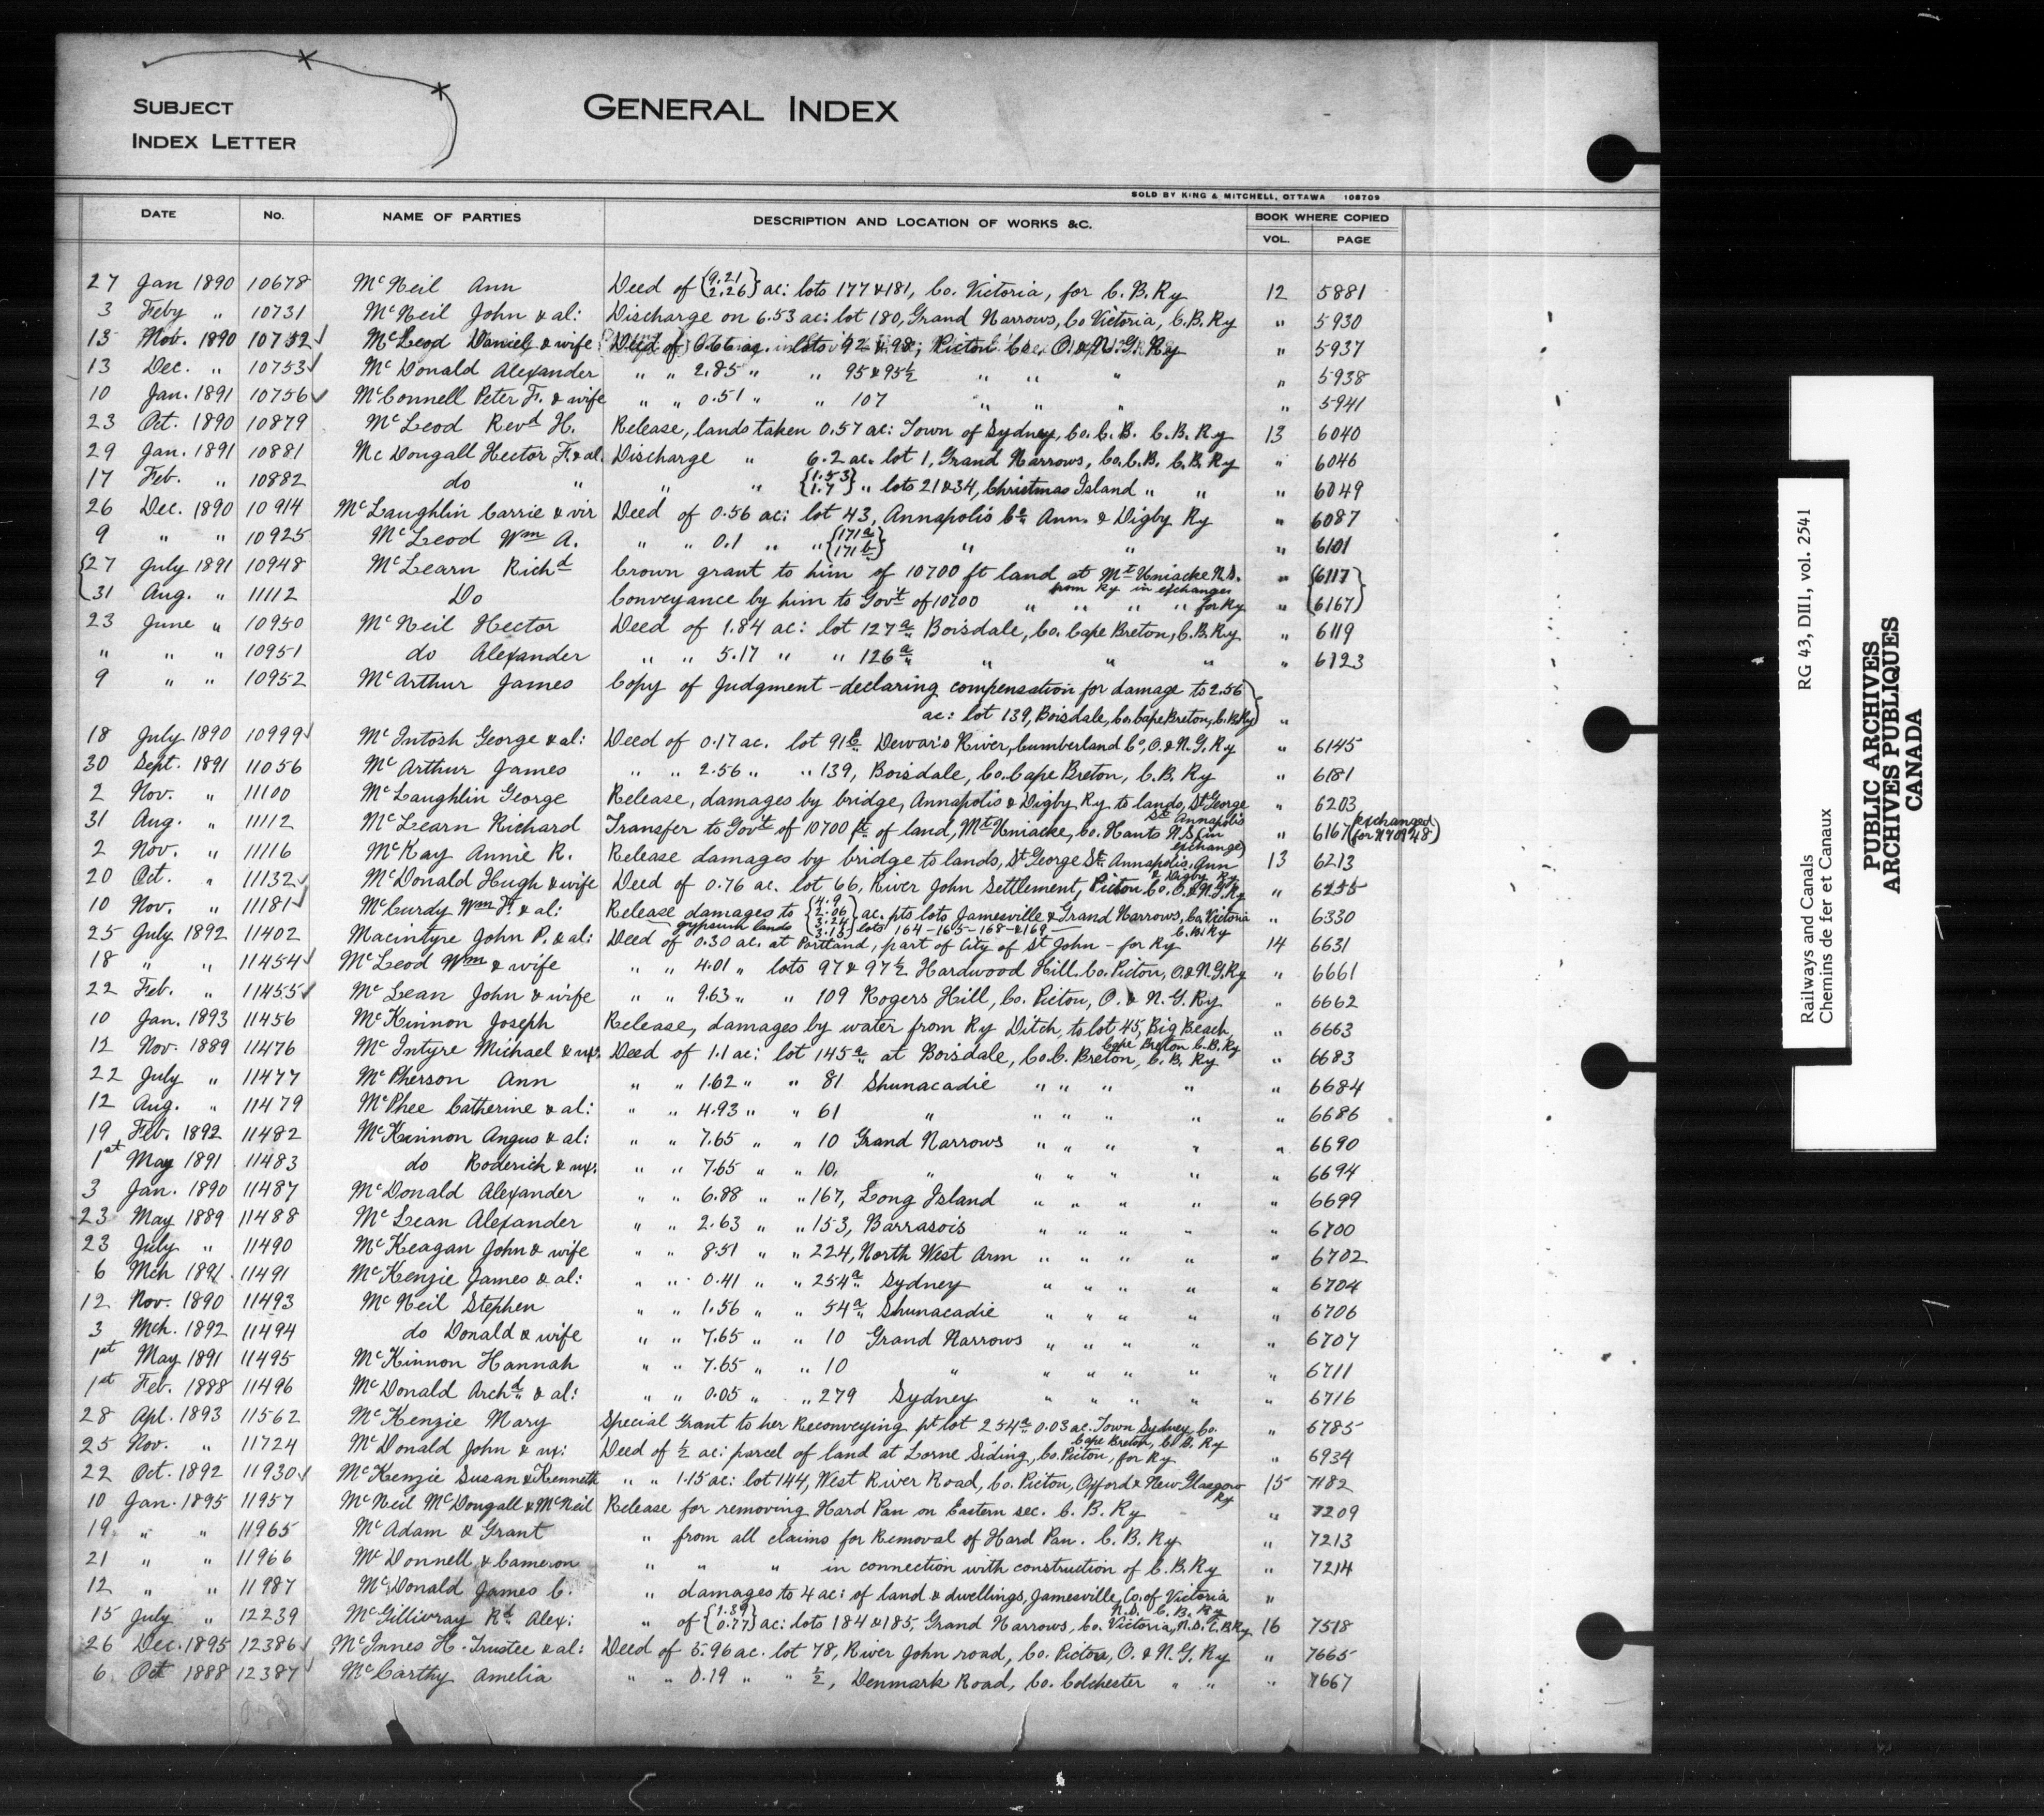 SUBJECT
INDEX LETTER
GENERAL INDEX
SOLD BY KING & MITCHELL, OTTAWA 108709
DATE No. NAME OF PARTIES DESCRIPTION AND LOCATION OF WORKS &C. BOOK WHERE COPIED
VOL. PAGE
27 Jan 1890 10678 McNeil Ann Deed of {9.21 2.26} ac: lots 177 & 181, Co. Victoria, for C.B. Ry 12 5881
3 Feby " 10731 McNeil John & al: Discharge on 6.53 ac: lot 180, Grand Narrows, Co Victoria, C.B. Ry " 5930
13 Nov. 1890 10752 McLeod Daniel & wife Deed of 0.66 ac. lots 92 & 98, Pictou Co. O. & N.G. Ry " 5937
13 Dec. " 10753 McDonald Alexander " " 2.85 " " 95 & 95½ " " " " 5938
10 Jan. 1891 10756 McConnell Peter F. & wife " " 0.51 " " 107 " " " " 5941
23 Oct. 1890 10879 McLeod Revd H. Release, lands taken 0.57 ac: Town of Sydney, Co. C.B. C.B. Ry 13 6040
29 Jan. 1891 10881 McDougall Hector F. & al. Discharge " 6.2 ac. lot 1, Grand Narrows, Co. C.B. C.B. Ry " 6046
17 Feb. " 10882 do " " " {1.53 1.7} " lots 21 & 34, Christmas Island " " " 6049
26 Dec. 1890 10914 McLaughlin Carrie & vir Deed of 0.56 ac: lot 43, Annapolis Co Ann. & Digby Ry " 6087
9 " " 10925 McLeod Wm A. " " 0.1 " " {171a 171b} " " " 6101
27 July 1891 10948 McLearn Richd Crown grant to him of 10700 ft land at Mt Uniacke N.S. " 6117
from Ry in exchange
31 Aug. " 11112 Do Conveyance by him to Govt of 10700 " " " " for Ry " 6167
23 June " 10950 McNeil Hector Deed of 1.84 ac: lot 127a Boisdale, Co. Cape Breton, C.B. Ry " 6119
" " " 10951 do Alexander " " 5.17 " " 126a " " " " 6123
9 " " 10952 McArthur James Copy of Judgment - declaring compensation for damage to 2.56
ac: lot 139, Boisdale, Co. Cape Breton, C.B. Ry "
18 July 1890 10999 McIntosh George & al: Deed of 0.17 ac. lot 91b Dewar's River, Cumberland Co, O. & N.G. Ry " 6145
30 Sept. 1891 11056 McArthur James " " 2.56 " " 139, Boisdale, Co. Cape Breton, C.B. Ry " 6181
2 Nov. " 11100 McLaughlin George Release, damages by bridge, Annapolis & Digby Ry to lands, St George " 6203
St Annapolis
31 Aug. " 11112 McLearn Richard Transfer to Govt of 10700 ft of land, Mt Uniacke, Co. Hants N.S. (in exchange) " 6167 (exchanged for No 10948)
2 Nov. " 11116 McKay Annie R. Release damages by bridge to lands, St George St. Annapolis, Ann 13 6213
& Digby Ry
20 Oct. " 11132 McDonald Hugh & wife Deed of 0.76 ac. lot 66, River John Settlement, Pictou Co. O. & N.G. Ry " 6255
10 Nov. " 11181 McCurdy Wm F. & al: Release damages to {4.9 2.06 3.24 3.13} ac. pts lots Jamesville & Grand Narrows, Co. Victoria " 6330
gypsum lands lots 164-165-168-&169 C.B. Ry
25 July 1892 11402 Macintyre John P. & al: Deed of 0.30 ac. at Portland, part of City of St John - for Ry 14 6631
18 " " 11454 McLeod Wm & wife " " 4.01 " lots 97 & 97½ Hardwood Hill. Co. Pictou, O. & N.G. Ry " 6661
22 Feb. " 11455 McLean John & wife " " 9.63 " " 109 Rogers Hill, Co. Pictou, O. & N.G. Ry " 6662
10 Jan. 1893 11456 McKinnon Joseph Release, damages by water from Ry Ditch, to lot 45, Big Beach, " 6663
Cape Breton C.B. Ry
12 Nov. 1889 11476 McIntyre Michael & ux. Deed of 1.1 ac: lot 145a at Boisdale, Co. C. Breton, C.B. Ry " 6683
22 July " 11477 McPherson Ann " " 1.62 " " 81 Shunacadie " " " " " 6684
12 Aug. " 11479 McPhee Catherine & al: " " 4.93 " " 61 " " " " " " 6686
19 Feb. 1892 11482 McKinnon Angus & al: " " 7.65 " " 10 Grand Narrows " " " " " 6690
1st May 1891 11483 do Roderich & ux. " " 7.65 " " 10, " " " " " " 6694
3 Jan. 1890 11487 McDonald Alexander " " 6.88 " " 167, Long Island " " " " " 6699
23 May 1889 11488 McLean Alexander " " 2.63 " " 153, Barrasois " " " " " 6700
23 July " 11490 McKeagan John & wife " " 8.51 " " 224, North West Arm " " " " " 6702
6 Mch 1891 11491 McKenzie James & al: " " 0.41 " " 254a Sydney " " " " " 6704
12 Nov. 1890 11493 McNeil Stephen " " 1.56 " " 54a Shunacadie " " " " " 6706
3 Mch. 1892 11494 do Donald & wife " " 7.65 " " 10 Grand Narrows " " " " " 6707
1st May 1891 11495 McKinnon Hannah " " 7.65 " " 10 " " " " " " 6711
1st Feb. 1888 11496 McDonald Archd & al: " " 0.05 " " 279 Sydney " " " " " 6716
28 Apl. 1893 11562 McKenzie Mary Special Grant to her Reconveying pt lot 254a 0.03 ac. Town Sydney, Co. " 6785
Cape Breton, C.B. Ry
25 Nov. " 11724 McDonald John & ux: Deed of ½ ac: parcel of land at Lorne Siding, Co. Pictou, for Ry " 6934
22 Oct. 1892 11930 McKenzie Susan & Kenneth " " 1.15 ac: lot 144, West River Road, Co. Pictou, Oxford & New Glasgow Ry 15 7182
10 Jan. 1895 11957 McNeil McDougall & McNeil Release for removing Hard Pan on Eastern sec. C.B. Ry " 7209
19 " " 11965 McAdam & Grant " from all claims for Removal of Hard Pan. C.B. Ry " 7213
21 " " 11966 McDonnell & Cameron " " " in connection with construction of C.B. Ry " 7214
12 " " 11987 McDonald James C. " damages to 4 ac: of land & dwellings, Jamesville, Co. of Victoria "
N.S. C.B. Ry
15 July " 12239 McGillivray Rd Alex: " of {1.39 0.77} ac: lots 184 & 185, Grand Narrows, Co. Victoria, N.S. C.B. Ry 16 7518
26 Dec. 1895 12386 McInnes H. Trustee & al: Deed of 5.96 ac. lot 78, River John road, Co. Pictou, O. & N.G. Ry " 7665
6 Oct 1888 12387 McCarthy Amelia " " 0.19 " " ½, Denmark Road, Co. Colchester " " " 7667
RG 43, DIII, vol. 2541
Railways and Canals
Chemins de fer et Canaux
PUBLIC ARCHIVES
ARCHIVES PUBLIQUES
CANADA